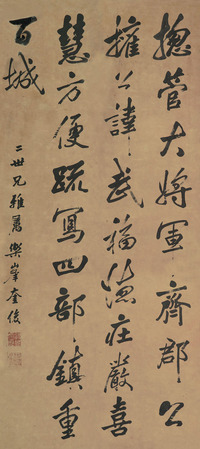 揔管大將軍齊郡公
權公諱武福德莊嚴喜
慧方便疏寫四部鎮重
百城
二世兄雅屬 樂峯奎俊